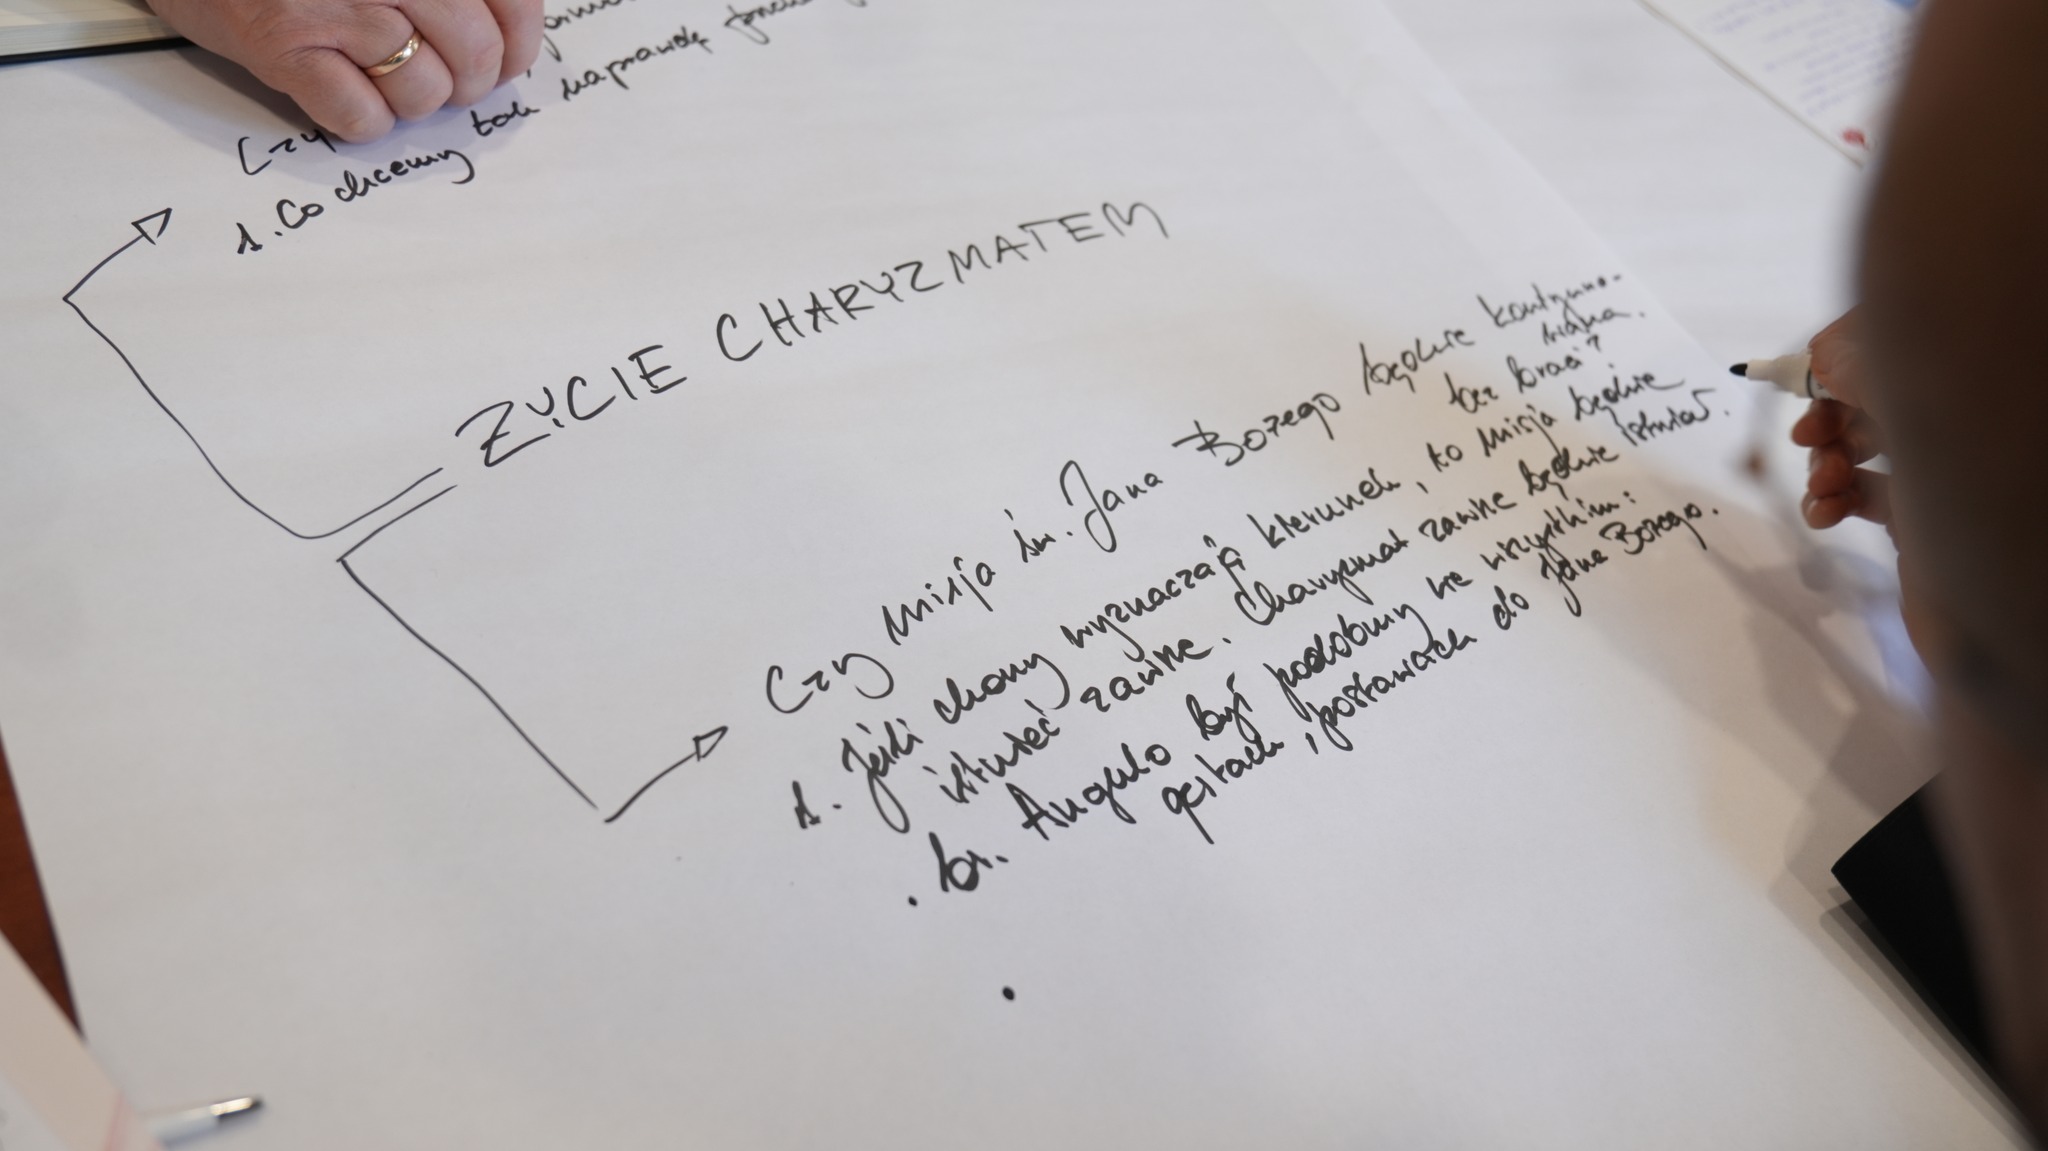 Czy
1. Co chcemy tak naprawdę
ŻYCIE CHARYZMATEM
Czy misja św. Jana Bożego będzie kontynuo-
wana.
bez braci?
1. Jeśli chorzy wyznaczają kierunek, to misja będzie
istnieć zawsze. Charyzmat zawsze będzie istniał.
. br. Angelo był podobny we wszystkim:
gestach, postawach do Jana Bożego.
.